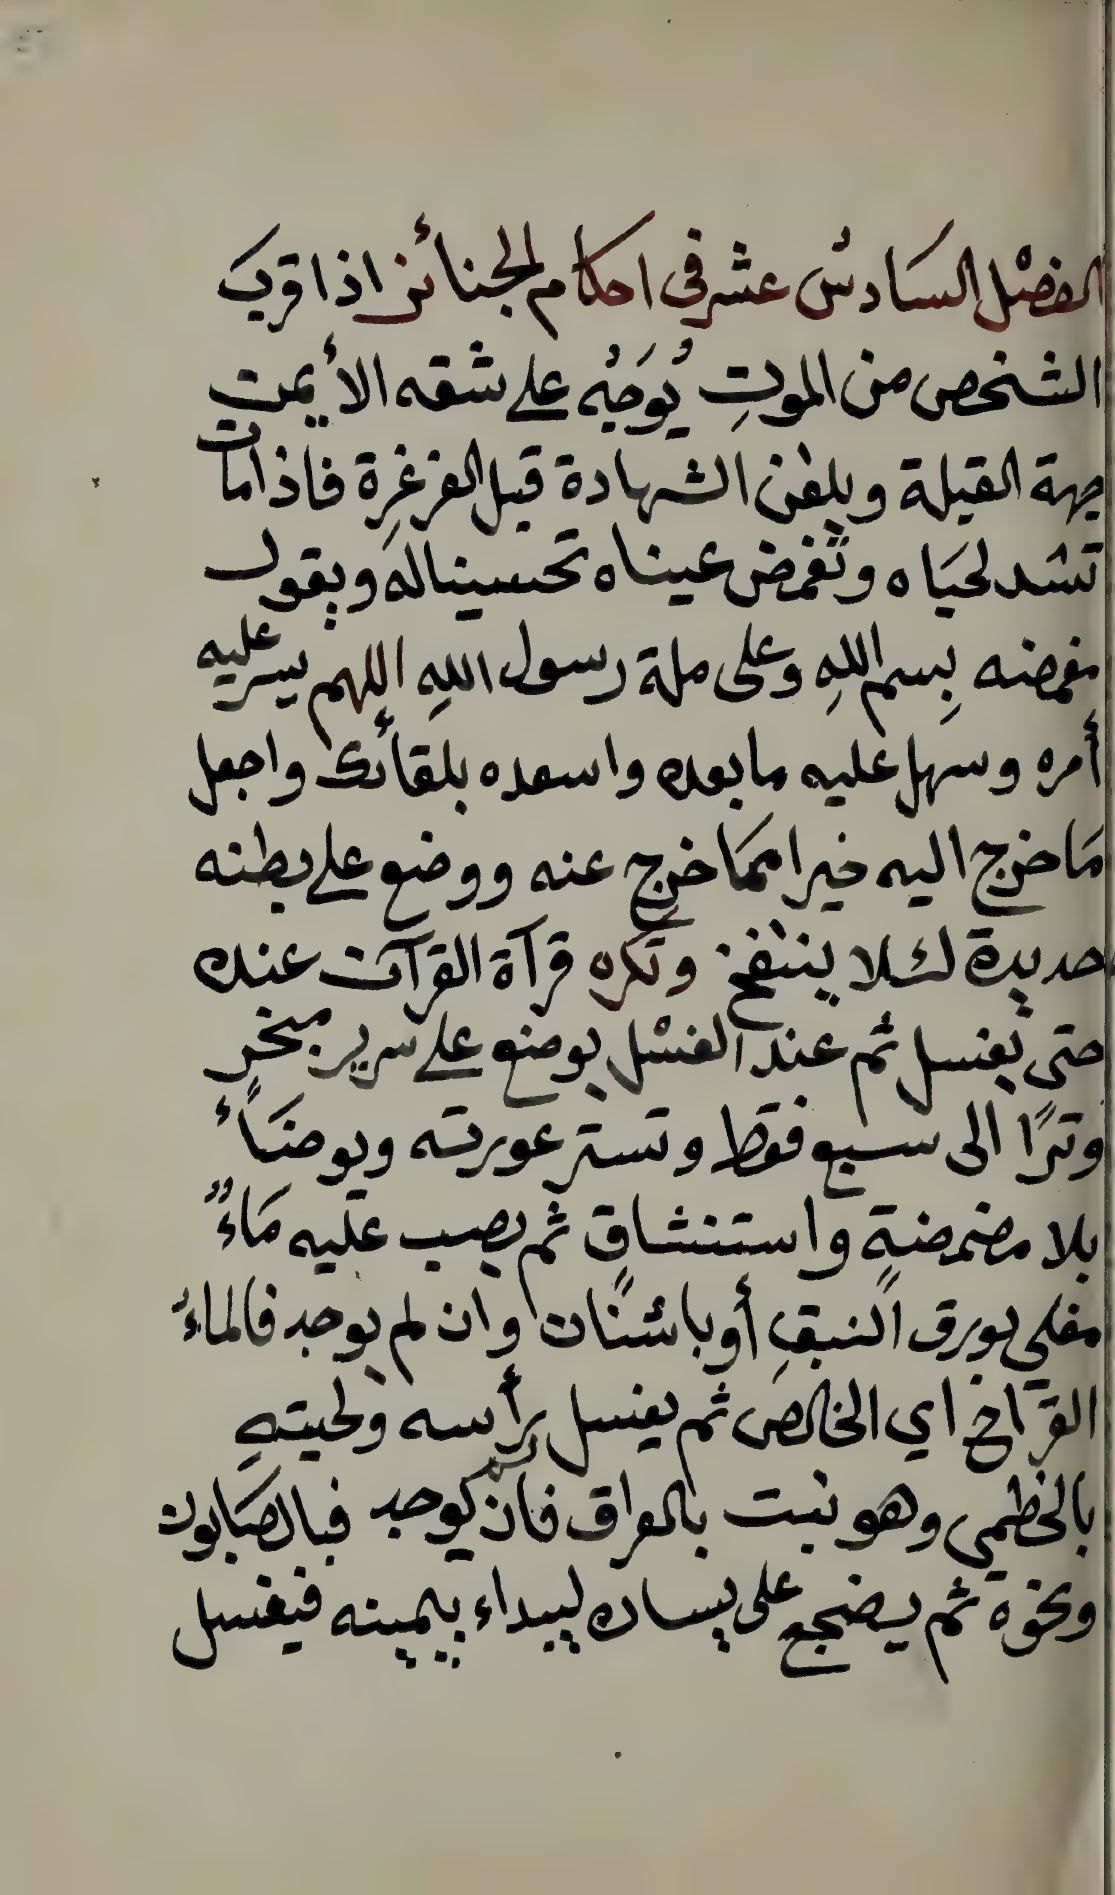 الفصل السادس عشر في احكام الجنائز اذا قرب
الشخص من الموتِ يُوَجَّهُ على شقه الأيمن
جهة القبلة ويلقن الشهادة قبل الغرغرة فاذا مات
تشد لحيَاه وتغمض عيناه تحسيناله ويقول
مغمضه بِسم اللهِ وعلى ملة رسول اللهِ اللهم يسر عليه
أمره وسهل عليه ما بعده واسعده بلقائك واجعل
مَا خرج اليه خيرا ممَا خرج عنه ووضع على بطنه
حديدة لئلا ينتفخ وتكره قرآة القرآن عنده
حتى يغسل ثم عند الغسْل يوضع على سرير مبخر
وترًا الى سبع فقط وتستر عورته ويوضَأ
بلا مضمضةٍ واستنشاقٍ ثم يصب عليه مَاءٌ
مغلي بورق النبقِ أو باشنان وان لم يوجد فالماءُ
القرَاح اي الخالص ثم يغسل رأسه ولحيتهِ
بالخطمي وهو نبت بالعراق فان لم يوجد فبالصَابون
ونحوه ثم يضجع على يساره ليبداء بيمينه فيغسل